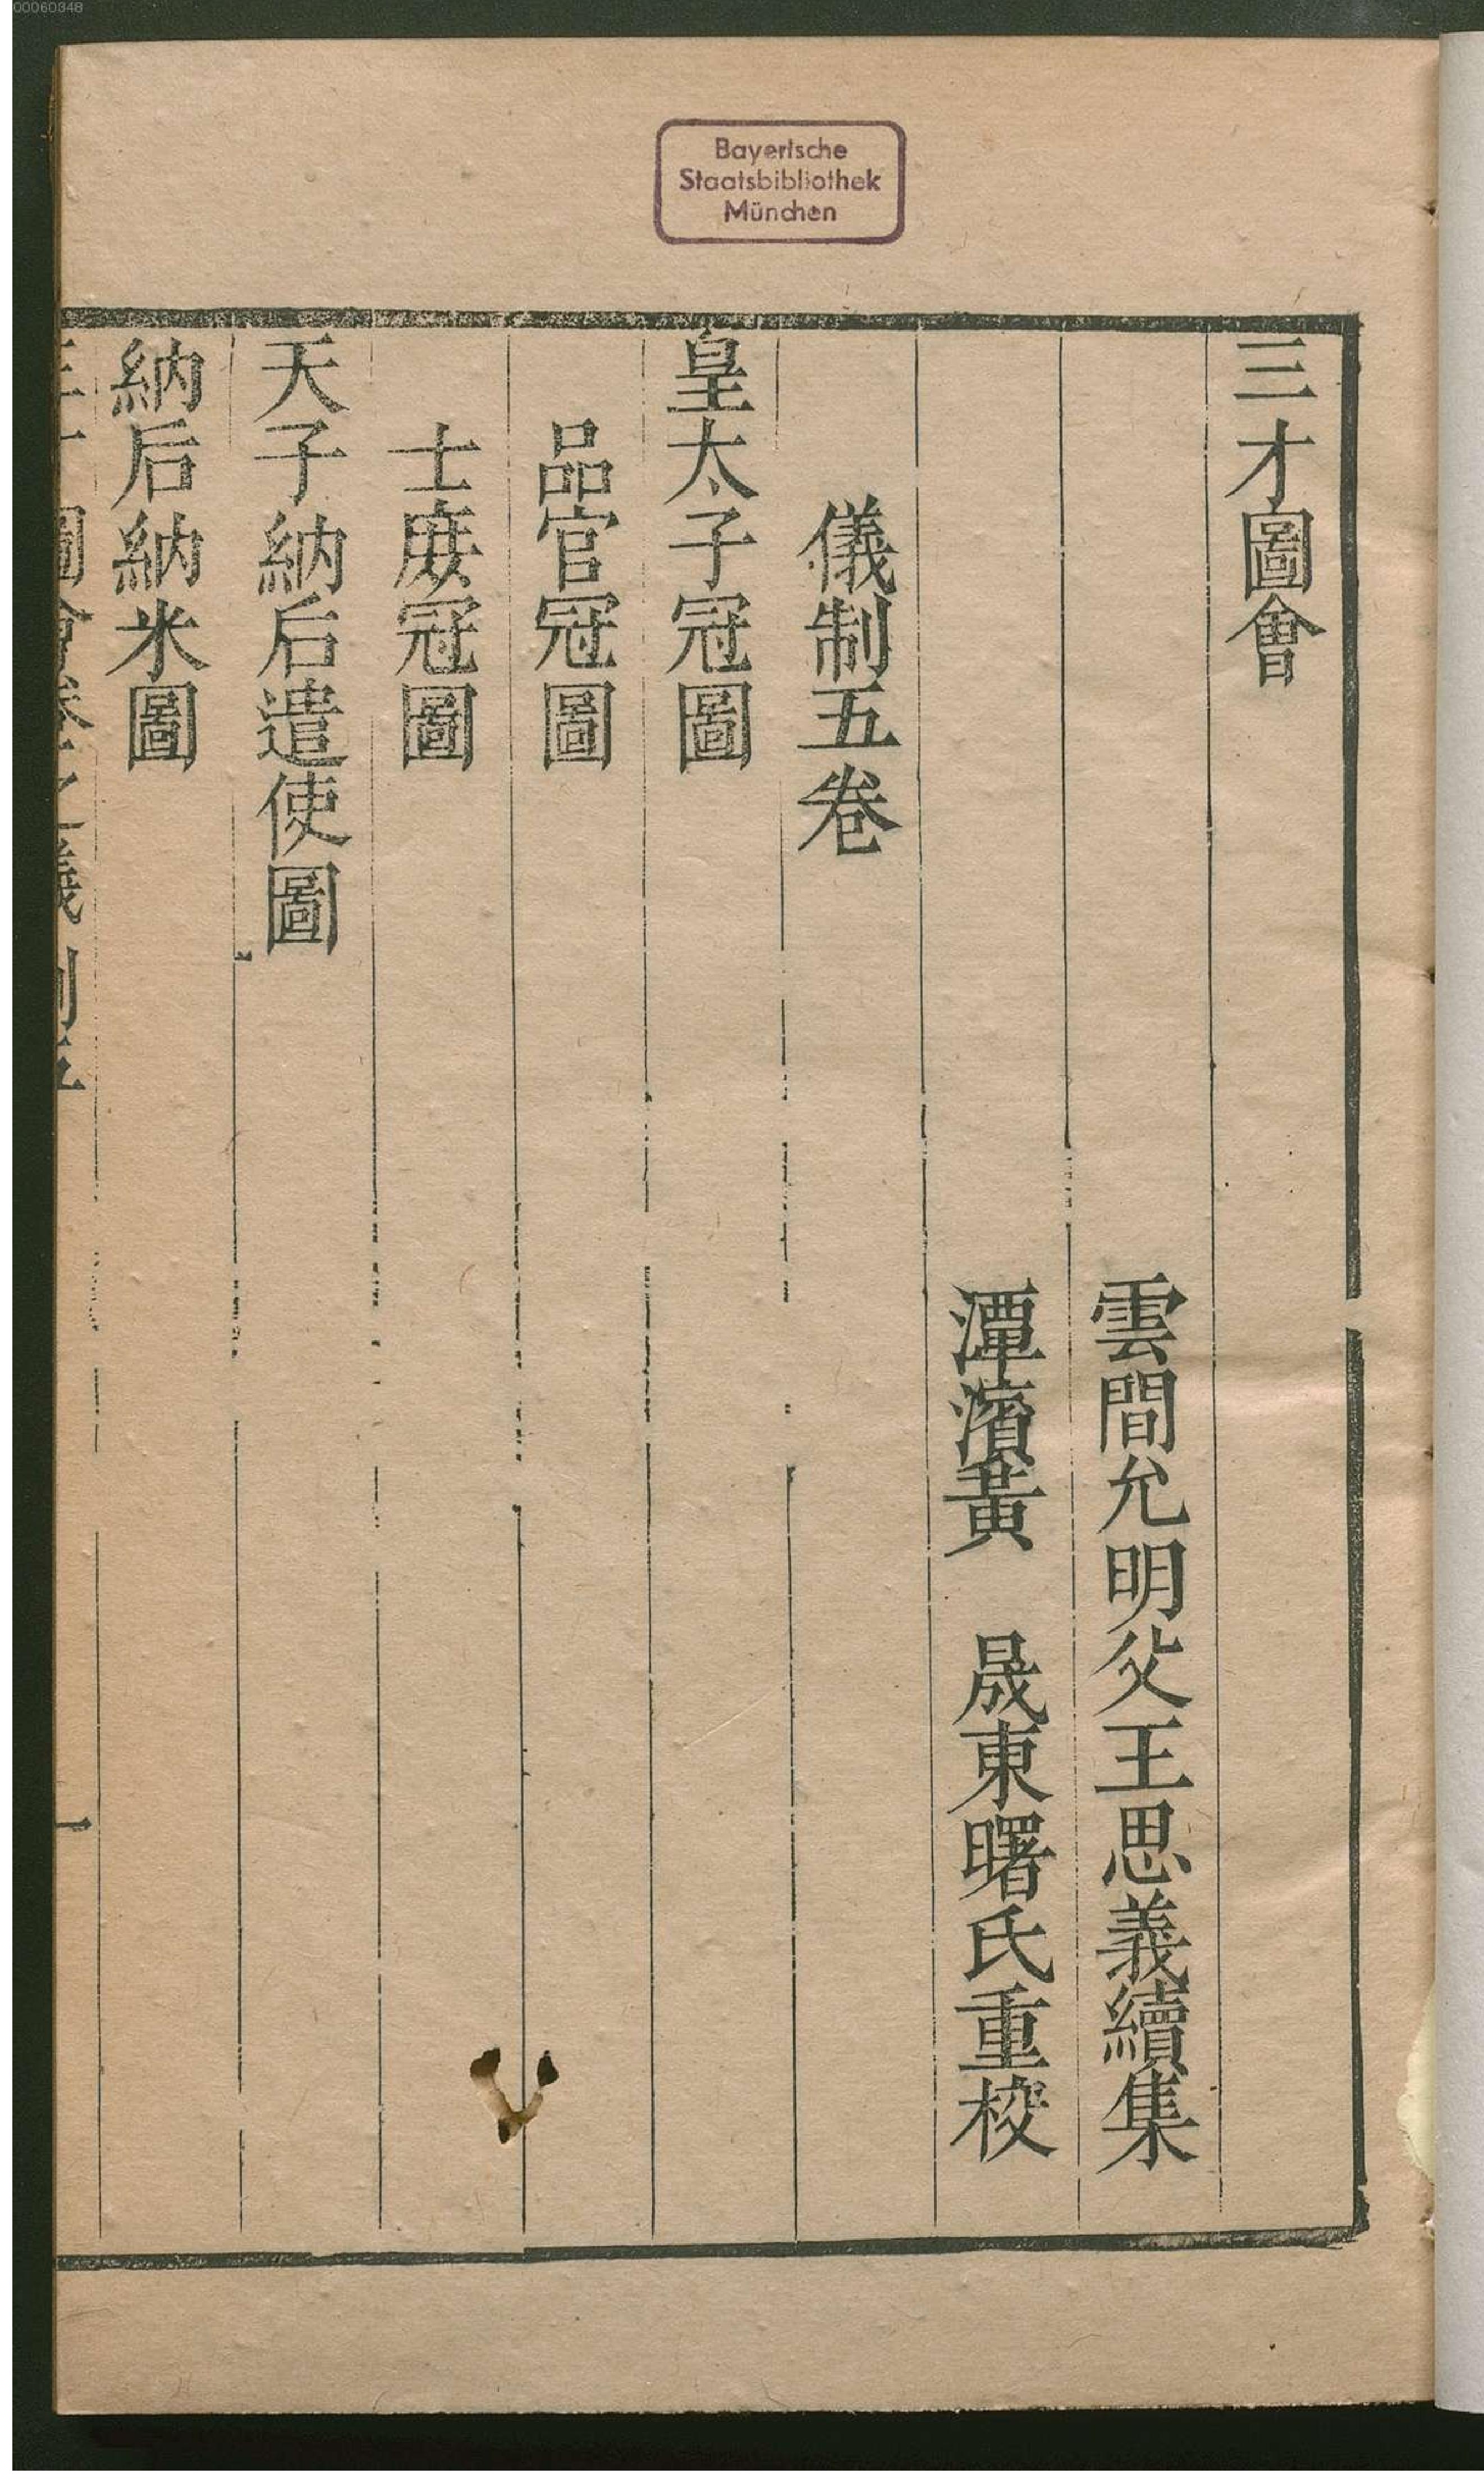 00060348
Bayerische
Staatsbibliothek
München
三才圖會
雲間允明父王思義續集
潭濱黃　晟東曙氏重校
儀制五卷
皇太子冠圖
品官冠圖
士庻冠圖
天子納后遣使圖
納后納米圖
圖會卷之儀制五
一